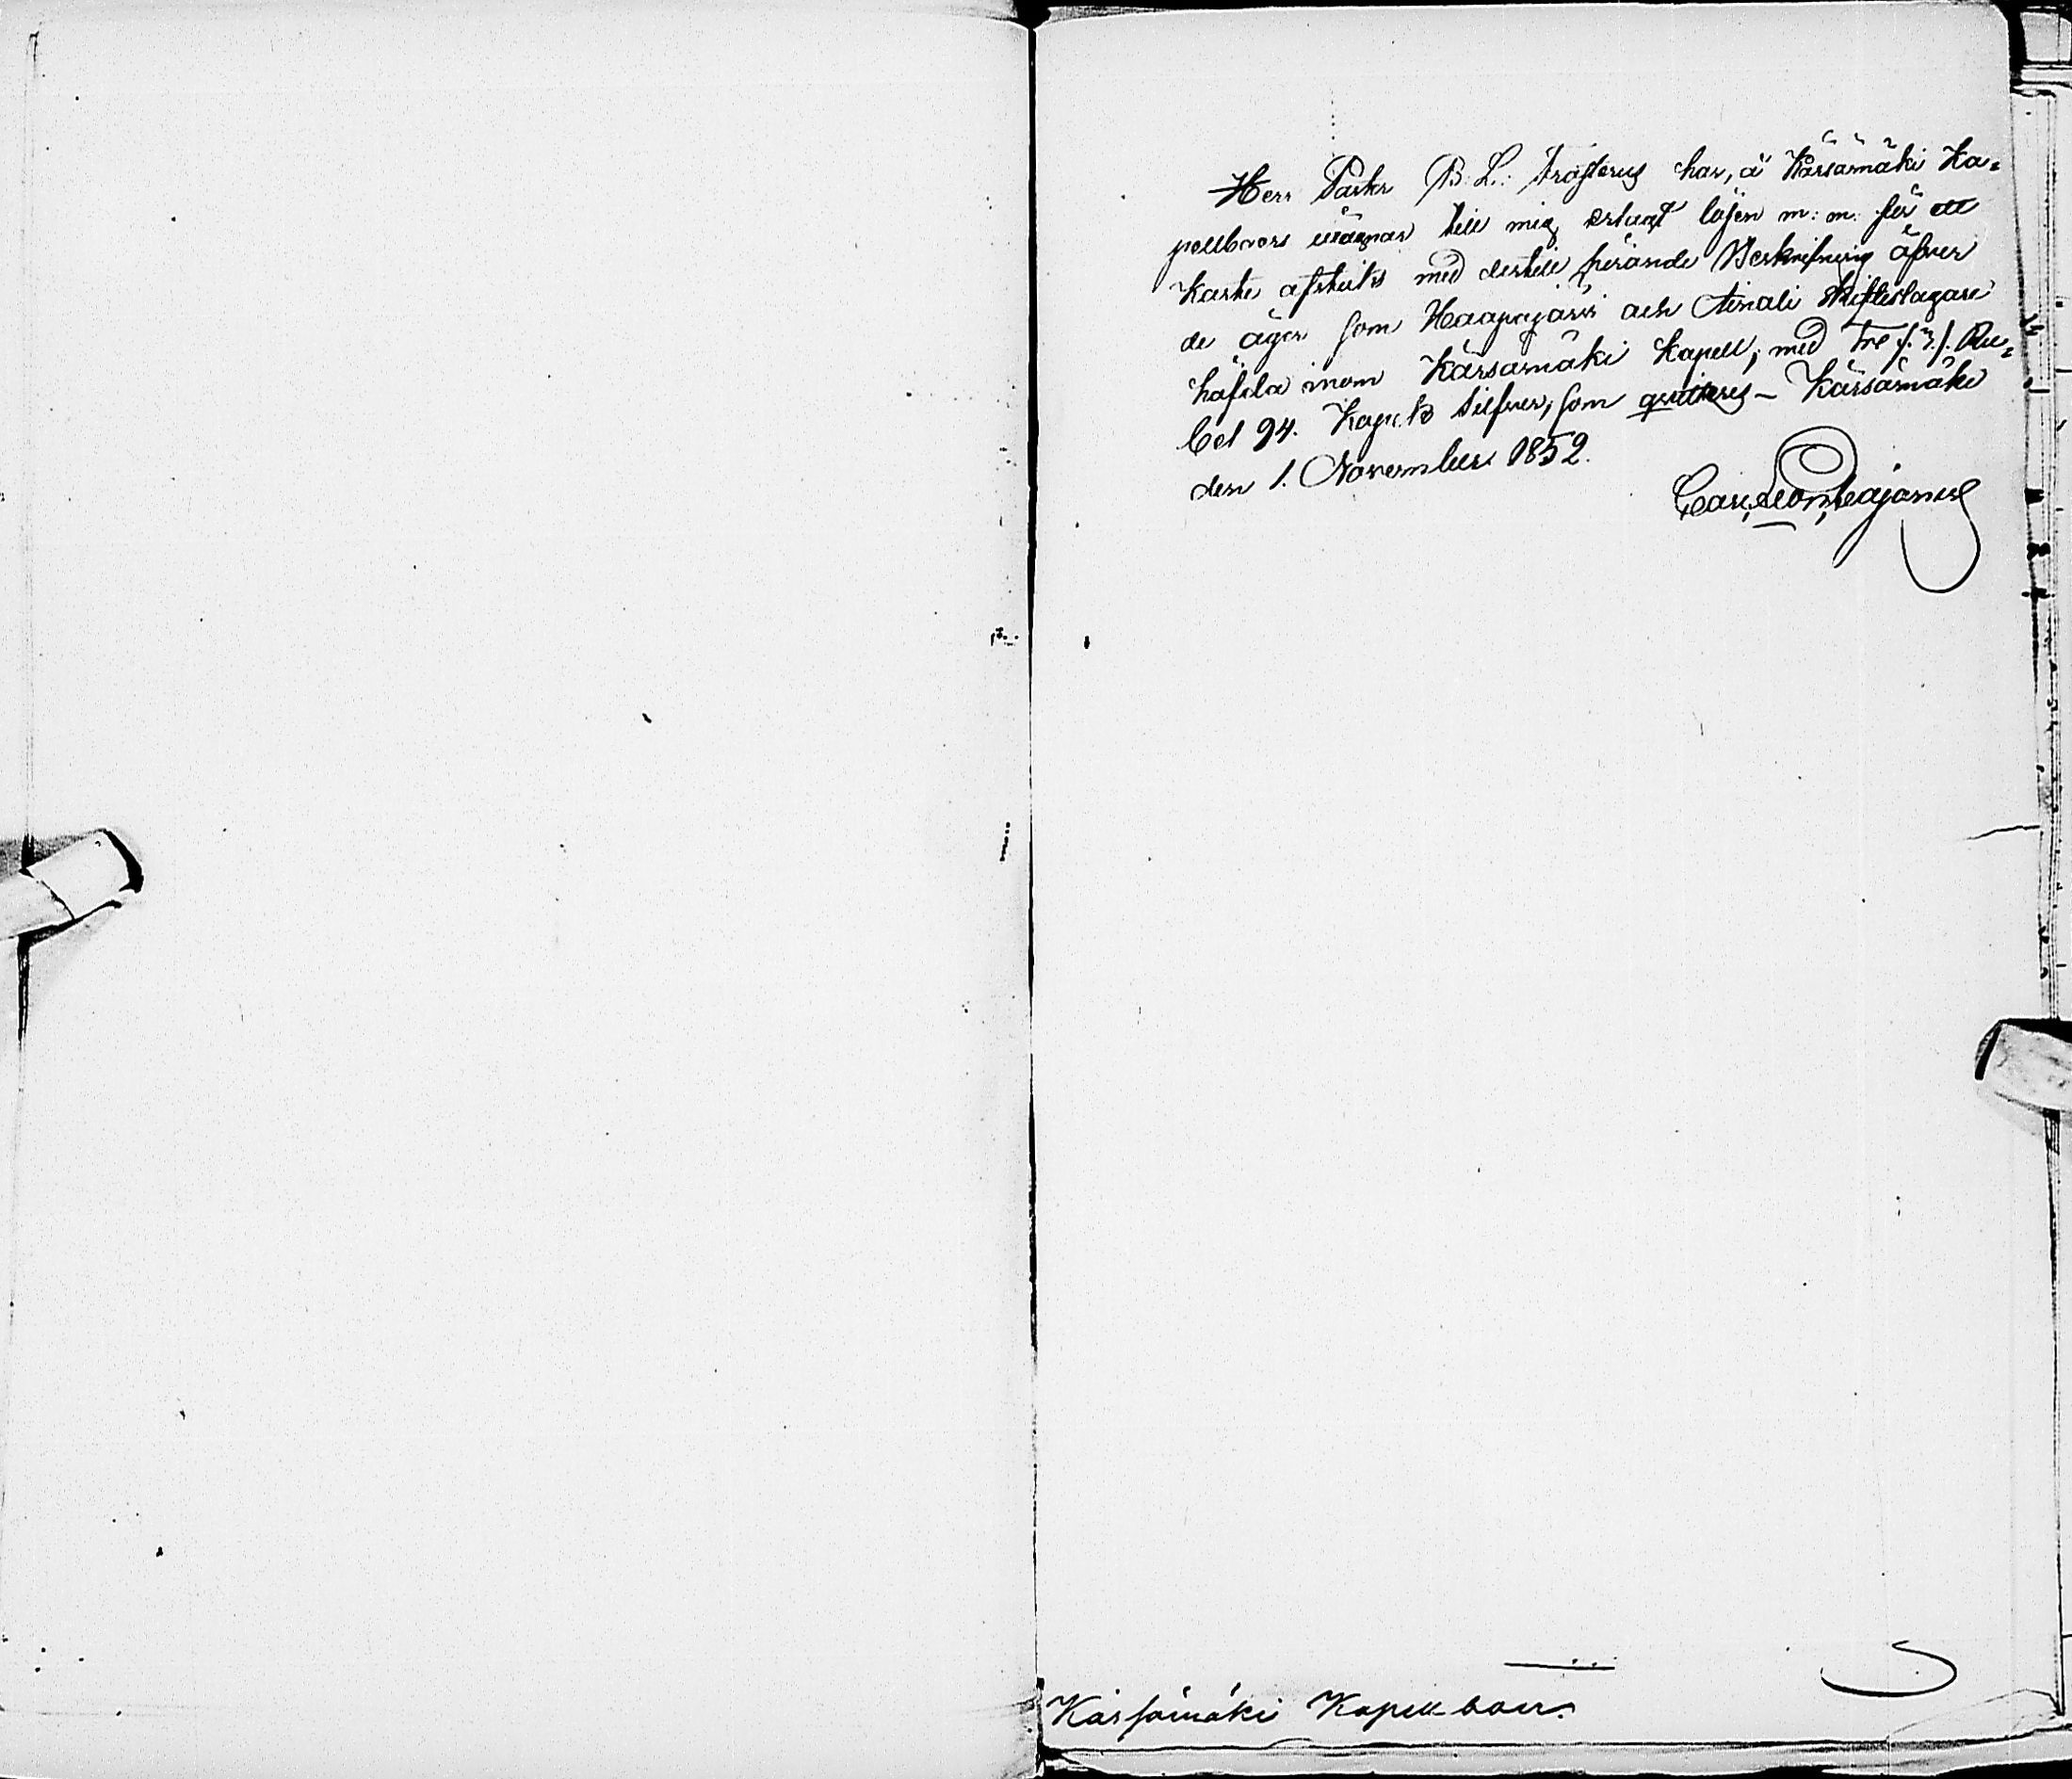 Herr Pastor B. L. Frosterus har, å Kärsämäki Ka=
pellboers wägnar till mig erlagt lösen m: m: för ett
Karte afskrift med dertill hörande Beskrifning öfwer
de ägor som Haapajärwi och skifteslagare
häfda inom Kärsämäki Kapell, med Tre /:3:/ Ru=
bel 94. Kop. Silfwer, som qvitteras – Kärsämäki
den 1. November 1852.
Kärsämäki Kapellboer.